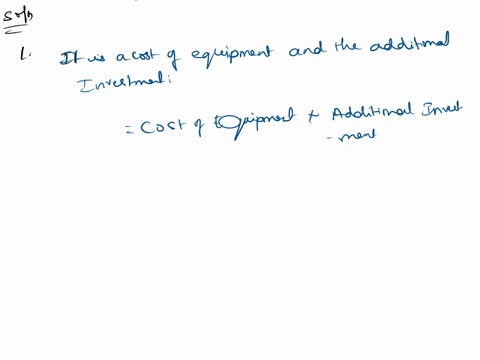 Soln
1. It is a cost of equipment and the additional
Investment:
= Cost of Equipment + Additional Invest
-ment